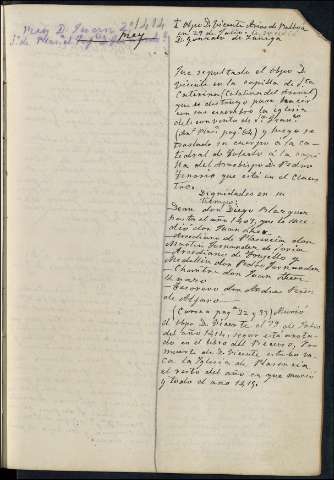 1414
† Obpo D. Vicente Arias de Balboa
en 29 de Julio. Le sucedió
D. Gonzalo de Zúñiga
Fue sepultado el Obpo D.
Vicente en la capilla de Sta
Catarina (Catalina del Arrabal)
que se destruyó para hacer
en sus la iglesia
del convento de Sn. Franco
pag. 64) y luego se
trasladó su cuerpo á la ca-
tedral de Toledo á la capi-
lla del Arzobispo D. Pedro
Tenorio que está en el Claus-
tro.
Dignidades en su
tiempo:
Dean don Diego Blazquez
hasta el año 1407, que le suce-
dió don Juan
Arcediano de Plasencia don
Martin Fernandez de Soria
Arcediano de Trujillo y
Medellin don Pedro Fernandez
Chantre don Juan
Tesorero don Andres Perez
de Alfaro
(Correa pag. 32 y 33) Murió
el Obpo D. Vicente el 29 de Julio
del año 1414, segun está anota-
do en el libro del Becerro. Por
muerte de D. Vicente estubo va-
ca la Iglesia de Plasencia
el resto del año en que murió
y todo el año 1415.